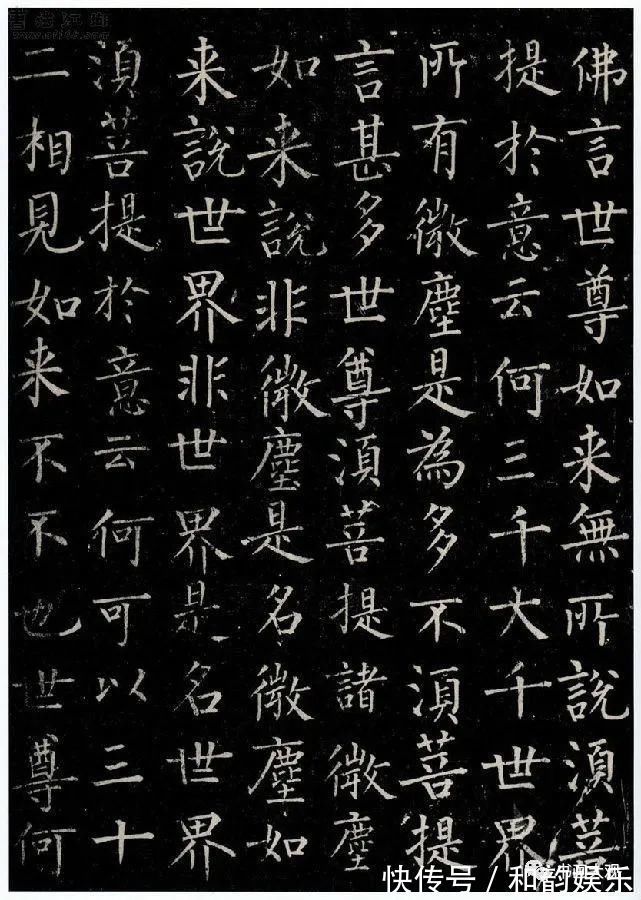 佛言世尊如来無所說湏菩
提於意云何三千大千世界
所有微塵是為多不湏菩提
言甚多世尊湏菩提諸微塵
如来說非微塵是名微塵如
来說世界非世界是名世界
湏菩提於意云何可以三十
二相見如来不不也世尊何
书画大观
快传号 / 和韵娱乐